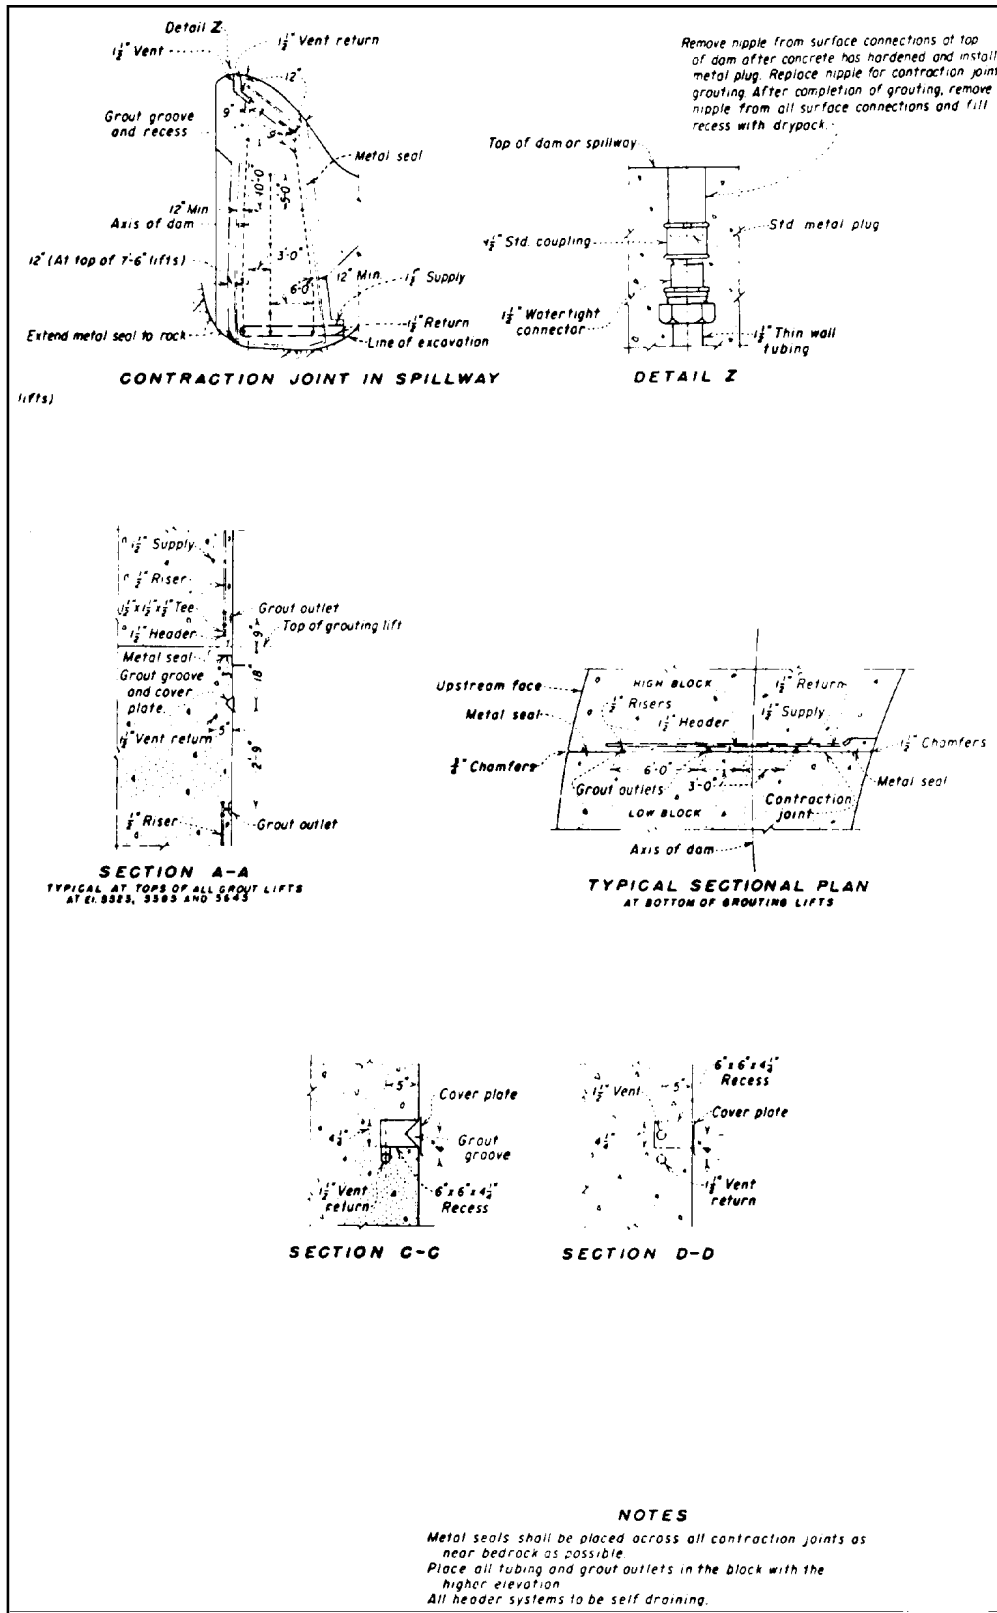 Detail Z
1½" Vent
1½" Vent return
12"
9"
9"
Grout groove
and recess
Metal seal
10'-0"
5'-0"
12" Min
Axis of dam
3'-0"
12" (At top of 7'-6" lifts)
12" Min.
6'-0"
1½" Supply
1½" Return
Extend metal seal to rock
Line of excavation
CONTRACTION JOINT IN SPILLWAY
lifts)
Remove nipple from surface connections at top
of dam after concrete has hardened and install
metal plug. Replace nipple for contraction joint
grouting. After completion of grouting, remove
nipple from all surface connections and fill
recess with drypack.
Top of dam or spillway
Std. metal plug
1½" Std. coupling
1½" Watertight
connector
1½" Thin wall
tubing
DETAIL Z
1½" Supply
½" Riser
1½" x 1½" x ½" Tee
Grout outlet
1½" Header
9"
Top of grouting lift
Metal seal
Grout groove
and cover
plate.
18"
1½" Vent return
5"
2'-9"
½" Riser
Grout outlet
SECTION A-A
TYPICAL AT TOPS OF ALL GROUT LIFTS
AT El. 5525, 5585 AND 5645
Upstream face
HIGH BLOCK
1½" Return
½" Risers
1½" Supply
Metal seal
1½" Header
1½" Chamfers
Chamfers
6'-0"
Metal seal
Grout outlets
3'-0"
Contraction
joint
LOW BLOCK
Axis of dam
TYPICAL SECTIONAL PLAN
AT BOTTOM OF GROUTING LIFTS
5"
Cover plate
4¼"
Grout
groove
1½" Vent
return
6" x 6" x 4¼"
Recess
SECTION C-C
6" x 6" x 4¼"
Recess
1½" Vent
5"
Cover plate
4¼"
1½" Vent
return
SECTION D-D
NOTES
Metal seals shall be placed across all contraction joints as
near bedrock as possible.
Place all tubing and grout outlets in the block with the
higher elevation
All header systems to be self draining.